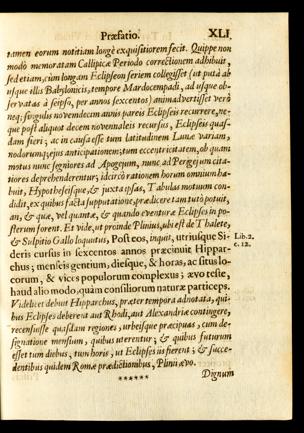 Præfatio. XLI
tamen eorum notitiam longè exquisitiorem fecit. Quippe non
modò memoratam Callipicæ Periodo correctionem adhibuit,
sed etiam, cùm longam Eclipseon seriem collegisset (ut putà ab
usque illis Babylonicis, tempore Mardocempadi, ad usque ob-
servatas à seipso, per annos sexcentos) animadvertisset verò
neq; singulis novendecim annis pareis Eclipseis recurrere, ne-
que post aliquot decem novennaleis recursus, Eclipseis quas-
dam fieri; ac in causa esse tum Latitudinem Lunæ variam,
nodorumq; ejus anticipationem; tum eccentricitatem, ob quam
motus nunc segniores ad Apogejum, nunc ad Perigejum cita-
tiores deprehenderentur; idcircò rationem horum omnium ha-
buit, Hypotheseisque, & juxta ipsas, Tabulas motuum con-
didit, ex quibus facta supputatione, prædicere tam tutò potuit,
an, & quæ, vel quantæ, & quando eventuræ Eclipses in po-
sterum forent. Et vide, ut proinde Plinius, ubi est de Thalete,
& Sulpitio Gallo loquutus, Post eos, inquit, utriusque Si-
Lib. 2.
c. 12.
deris cursus in sexcentos annos præcinuit Hippar-
chus; menseis gentium, diesque, & horas, ac situs lo-
corum, & vices populorum complexus; ævo teste,
haud alio modo, quàm consiliorum naturæ particeps.
Videlicet debuit Hipparchus, præter tempora adnotata, qui-
bus Eclipses deberent aut Rhodi, aut Alexandriæ contingere,
recensuisse quasdam regiones, urbesque præcipuas, cum de-
signatione mensium, quibus uterentur; & quibus futurum
esset tum diebus, tum horis, ut Eclipses iis fierent; & succe-
dentibus quidem Romæ prædictionibus, Plinii ævo.
******
Dignum